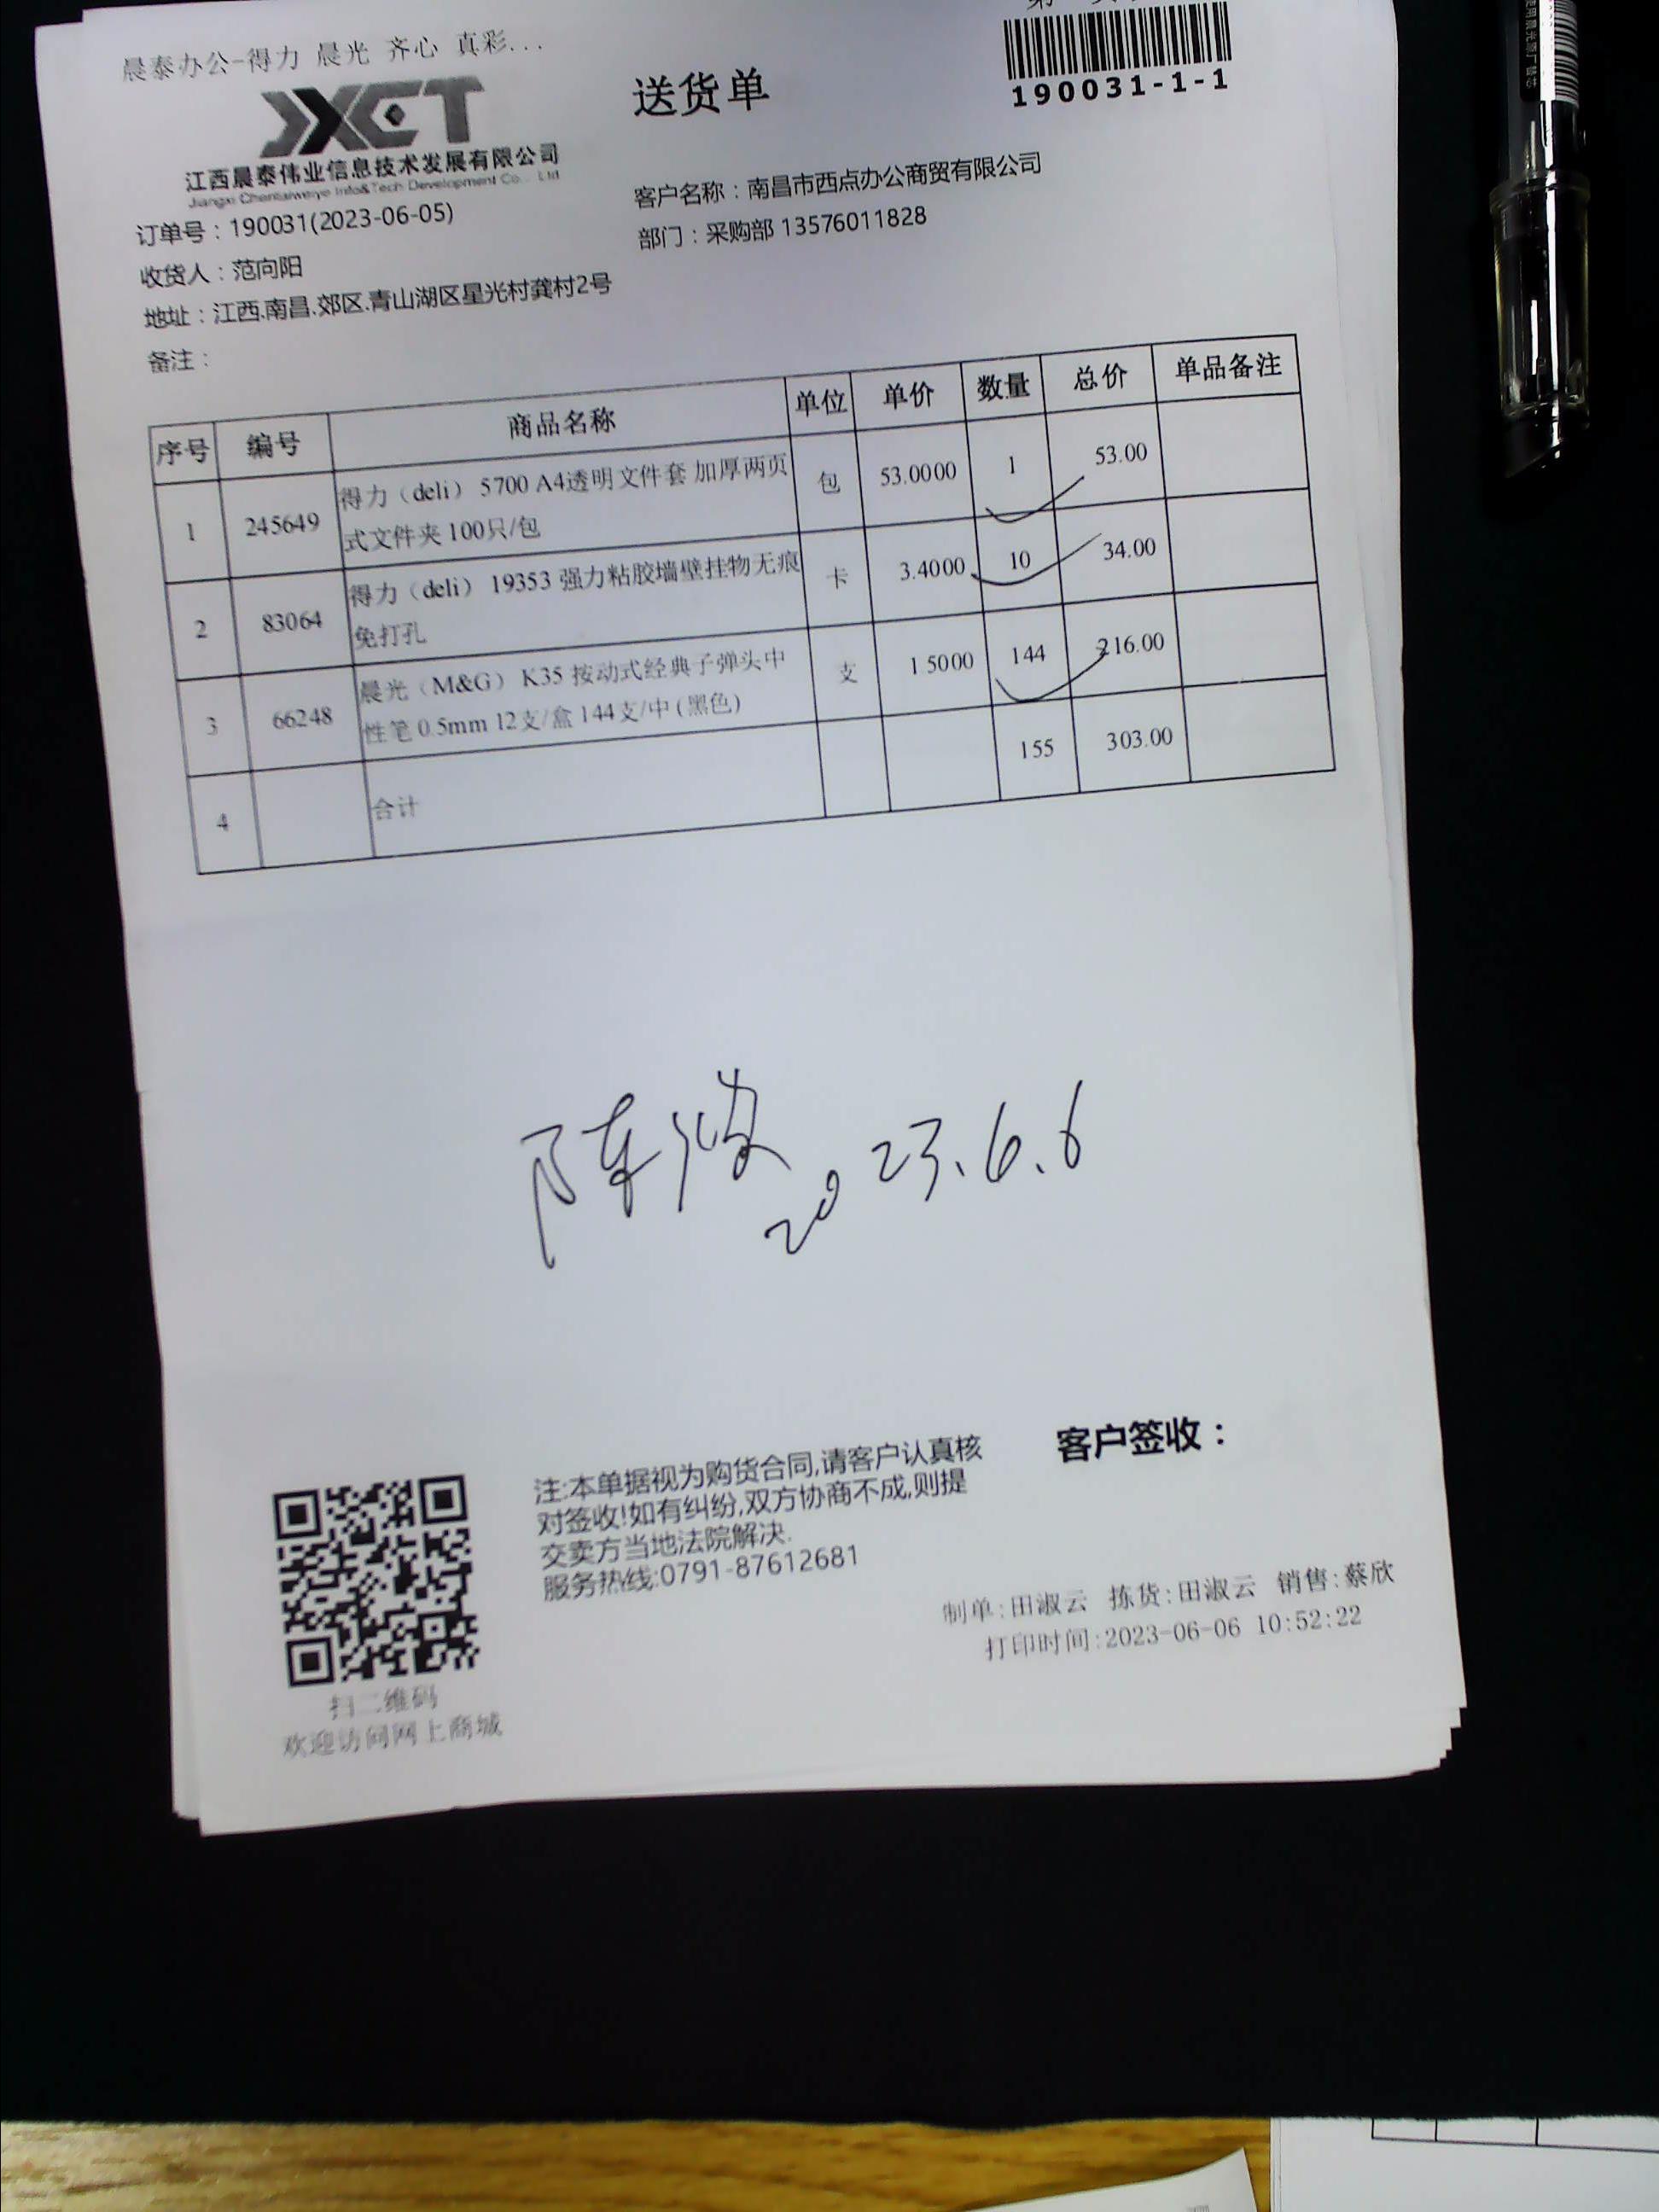 晨泰办公-得力 晨光 齐心 真彩...
JXCT
江西晨泰伟业信息技术发展有限公司
Jiangxi Chentaiweiye Info&Tech Development Co., Ltd
送货单
190031-1-1
订单号：190031(2023-06-05)
客户名称：南昌市西点办公商贸有限公司
收货人：范向阳
部门：采购部 13576011828
地址：江西.南昌.郊区.青山湖区星光村龚村2号
备注：
序号 编号 商品名称 单位 单价 数量 总价 单品备注
1 245649 得力（deli） 5700 A4透明文件套 加厚两页 包 53.0000 1 53.00
式文件夹 100只/包
2 83064 得力（deli） 19353 强力粘胶墙壁挂物无痕 卡 3.4000 10 34.00
免打孔
3 66248 晨光（M&G） K35 按动式经典子弹头中 支 1.5000 144 216.00
性笔 0.5mm 12支/盒 144支/中 (黑色)
4 合计 155 303.00
2023.6.6
客户签收：
注:本单据视为购货合同,请客户认真核
对签收!如有纠纷,双方协商不成,则提
交卖方当地法院解决.
服务热线:0791-87612681
制单:田淑云 拣货:田淑云 销售:蔡欣
打印时间:2023-06-06 10:52:22
扫二维码
欢迎访问网上商城